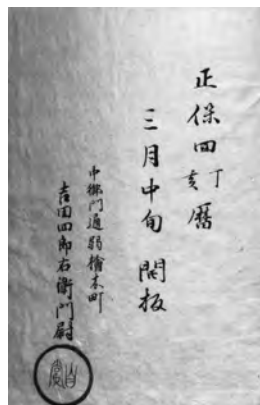 正保四丁亥暦
三月中旬 開板
中御門通弱檜木町
吉田四郎右衛門尉